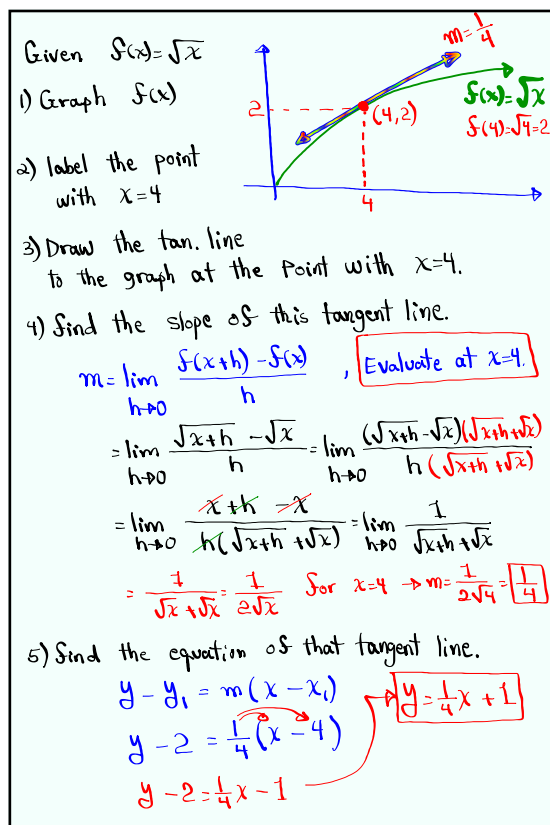 Given f(x)=√x
m=1/4
1) Graph f(x)
f(x)=√x
2
(4,2)
f(4)=√4=2
2) label the point
with x=4
4
3) Draw the tan. line
to the graph at the Point with x=4.
4) find the slope of this tangent line.
m=lim h→0 (f(x+h)-f(x))/h , Evaluate at x=4.
=lim h→0 (√x+h - √x)/h = lim h→0 ((√x+h-√x)(√x+h+√x))/(h(√x+h+√x))
=lim h→0 (x+h-x)/(h(√x+h+√x)) = lim h→0 1/(√x+h+√x)
= 1/(√x+√x) = 1/(2√x) for x=4 → m=1/(2√4)=1/4
5) find the equation of that tangent line.
y-y₁=m(x-x₁)
y=1/4x+1
y-2=1/4(x-4)
y-2=1/4x-1